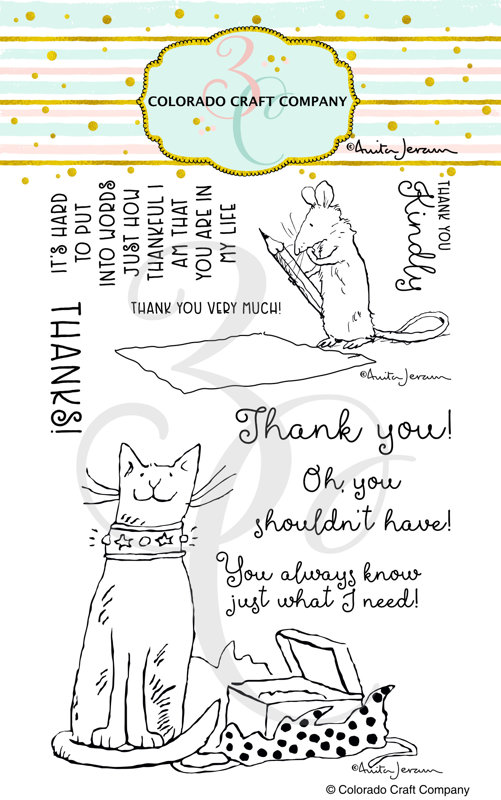 3C
COLORADO CRAFT COMPANY
©Anita Jeram
IT'S HARD
TO PUT
INTO WORDS
JUST HOW
THANKFUL I
AM THAT
YOU ARE IN
MY LIFE
THANK YOU
Kindly
THANK YOU VERY MUCH!
THANKS!
©Anita Jeram
3C
Thank you!
Oh, you
shouldn't have!
You always know
just what I need!
©Anita Jeram
© Colorado Craft Company